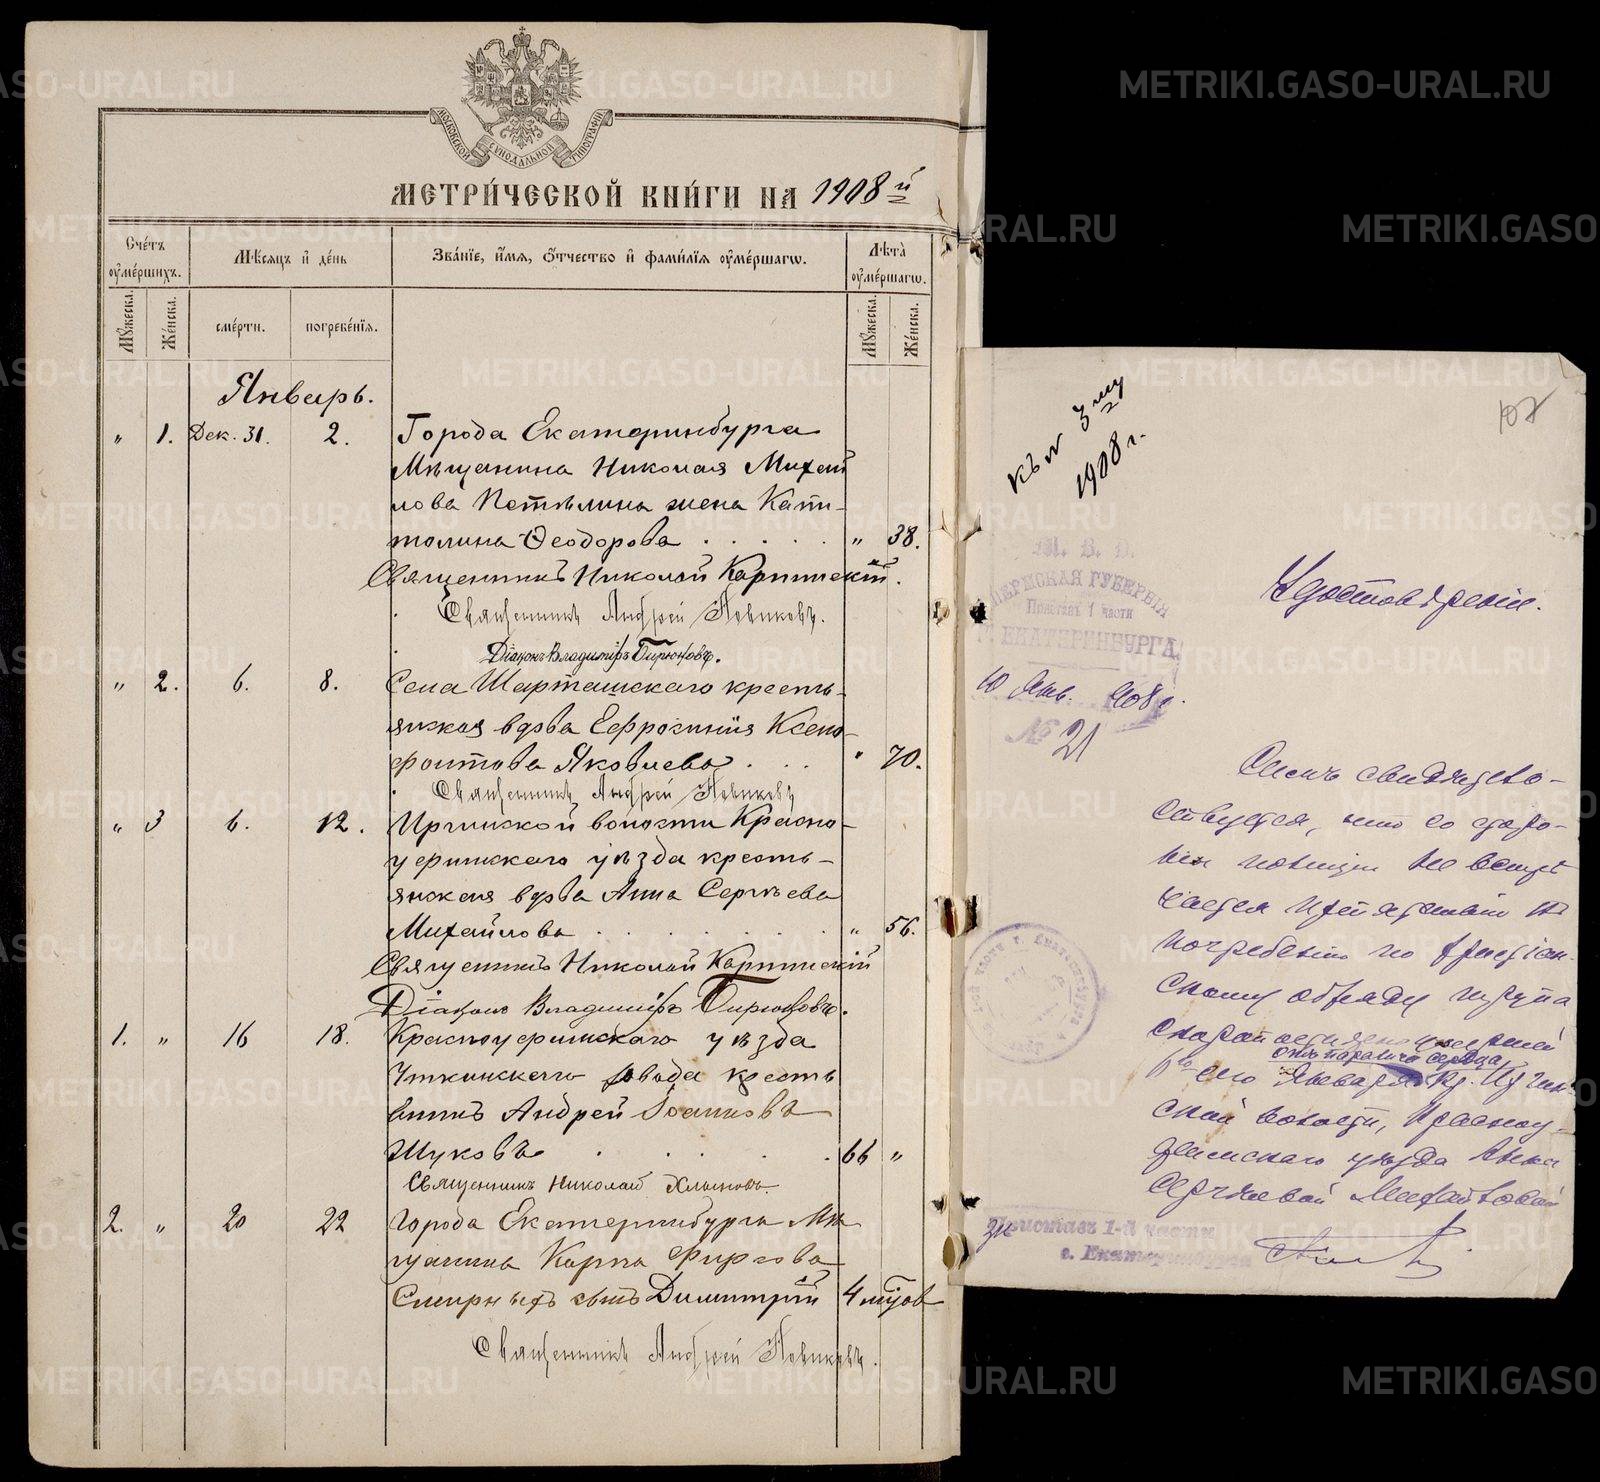 МОСКОВСКОЙ СѴНОДАЛЬНОЙ ТИПОГРАФІИ
МЕТРИ́ЧЕСКОЙ КНИ́ГИ НА 1908 й
Сче́тъ ѹме́ршихъ.
Мѣ́сѧцъ и҆ де́нь
Зва́нїе, и҆́мѧ, ѻ҆́тчество и҆ фами́лїѧ ѹме́ршагѡ.
Лѣта̀ ѹме́ршагѡ.
Мꙋ́жеска.
Же́нска.
сме́рти.
погребе́нїѧ.
Мꙋ́жеска.
Же́нска.
Январь.
" 1. Дек. 31. 2. Города Екатеринбурга
Мѣщанина Николая Михай
лова Петѣлина жена Капи-
толина Ѳеодорова . . . . . " 38.
Священникъ Николай
Священникъ Андрей Новиковъ.
Діаконъ Владиміръ Бирюковъ.
" 2. 6. 8. Села Шарташскаго кресть-
янская вдова Евфросинія Ксено-
фонтова Яковлева . . . " 70.
Священникъ Андрей Новиковъ
" 3 6. 12. Иргинской волости Красно-
уфимскаго уѣзда кресть-
янская вдова Анна Сергѣева
Михайлова . . . . . . . " 56.
Священникъ Николай
Діаконъ Владиміръ Бирюковъ.
1. " 16 18. Красноуфимскаго уѣзда
Уткинскаго завода кресть
янинъ Андрей Іоанновъ
Шуковъ . . . . . 66 "
Священникъ Николай Хлыновъ.
2. " 20 22 Города Екатеринбурга Мѣ
щанина Карпа Фирсова
Смирныхъ сынъ Димитрій 4 мѣсяцов
Священникъ Андрей Новиковъ.
107
къ № 3 му
1908 г.
М. В. Д.
ПЕРМСКАЯ ГУБЕРНІЯ
Приставъ 1 части
Г. ЕКАТЕРИНБУРГА
10 Янв. 1908 г.
№ 21
Удостовѣреніе.
Симъ свидѣтель-
ствуется, что со сторо-
ны полиціи не встрѣ
чается препятствій къ
погребенію по христіан-
скому обряду трупа
скоропостижно умершей
отъ паралича сердца
6го сего Января кр. Иргин-
ской волости, Красноу-
фимскаго уѣзда Анны
Сергѣевой Михайловой
Приставъ 1-й части
г. Екатеринбурга
METRIKI.GASO-URAL.RU